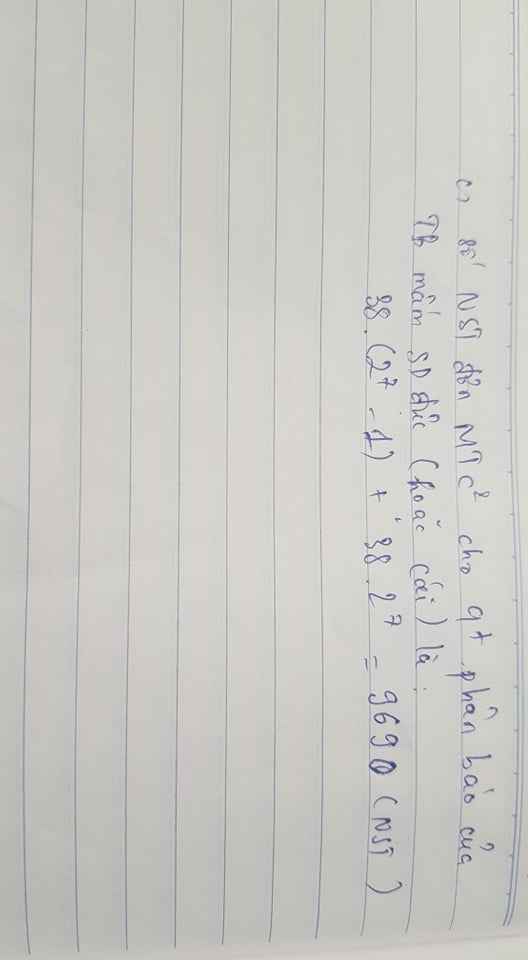 c) Số NST đơn MTCC cho qt phân bào của
TB mầm SD đực (hoặc cái) là:
38.(2⁷ - 1) + 38.2⁷ = 9690 (NST)